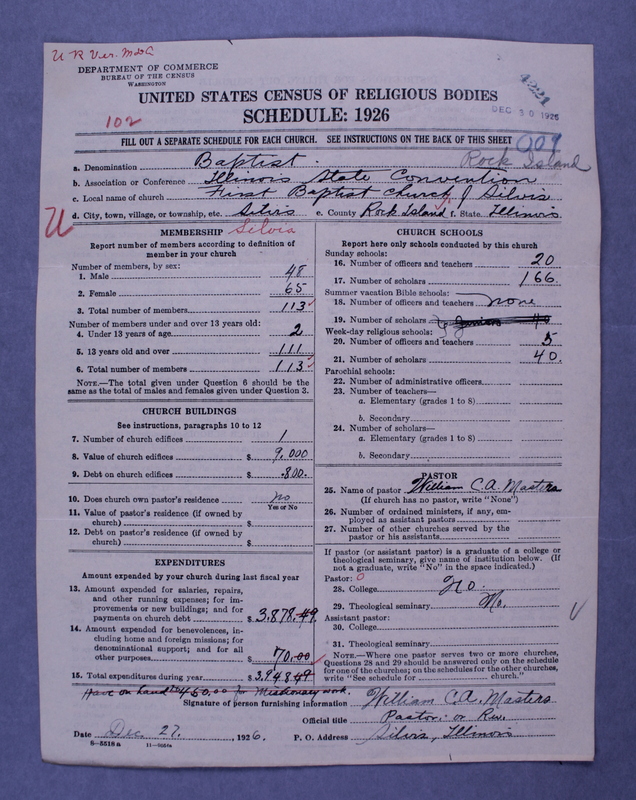 U R Ver. M&C
DEPARTMENT OF COMMERCE
BUREAU OF THE CENSUS
WASHINGTON
4221
UNITED STATES CENSUS OF RELIGIOUS BODIES
SCHEDULE: 1926
DEC 30 1926
102
FILL OUT A SEPARATE SCHEDULE FOR EACH CHURCH. SEE INSTRUCTIONS ON THE BACK OF THIS SHEET
009
a. Denomination Baptist. Rock Island
b. Association or Conference Illinois State Convention
c. Local name of church First Baptist Church of Silvis
d. City, town, village, or township, etc. Silvis e. County Rock Island f. State Illinois
U
MEMBERSHIP Silvis
Report number of members according to definition of
member in your church
Number of members, by sex:
1. Male 48
2. Female 65
3. Total number of members 113
Number of members under and over 13 years old:
4. Under 13 years of age 2
5. 13 years old and over 111
6. Total number of members 113
NOTE.—The total given under Question 6 should be the
same as the total of males and females given under Question 3.
CHURCH BUILDINGS
See instructions, paragraphs 10 to 12
7. Number of church edifices 1
8. Value of church edifices $ 9,000
9. Debt on church edifices $ 800.
10. Does church own pastor's residence no
Yes or No
11. Value of pastor's residence (if owned by
church) $
12. Debt on pastor's residence (if owned by
church) $
EXPENDITURES
Amount expended by your church during last fiscal year
13. Amount expended for salaries, repairs,
and other running expenses; for im-
provements or new buildings; and for
payments on church debt $ 3,878.49
14. Amount expended for benevolences, in-
cluding home and foreign missions; for
denominational support; and for all
other purposes $ 70.00
15. Total expenditures during year $ 3,948.49
CHURCH SCHOOLS
Report here only schools conducted by this church
Sunday schools:
16. Number of officers and teachers 20
17. Number of scholars 166
Summer vacation Bible schools:
18. Number of officers and teachers none
19. Number of scholars
Week-day religious schools:
20. Number of officers and teachers 5
21. Number of scholars 40.
Parochial schools:
22. Number of administrative officers
23. Number of teachers—
a. Elementary (grades 1 to 8)
b. Secondary
24. Number of scholars—
a. Elementary (grades 1 to 8)
b. Secondary
PASTOR
25. Name of pastor William C.A. Masters
(If church has no pastor, write "None")
26. Number of ordained ministers, if any, em-
ployed as assistant pastors
27. Number of other churches served by the
pastor or his assistants
If pastor (or assistant pastor) is a graduate of a college or
theological seminary, give name of institution below. (If
not a graduate, write "No" in the space indicated.)
Pastor: 0
28. College No.
29. Theological seminary No.
Assistant pastor:
30. College
31. Theological seminary
NOTE.—Where one pastor serves two or more churches,
Questions 28 and 29 should be answered only on the schedule
for one of the churches; on the schedules for the other churches,
write "See schedule for church."
Have on hand 450.00 for Missionary work.
Signature of person furnishing information William C.A. Masters
Official title Pastor. or Rev.
Date Dec. 27. , 1926. P. O. Address Silvis, Illinois
8—5518a